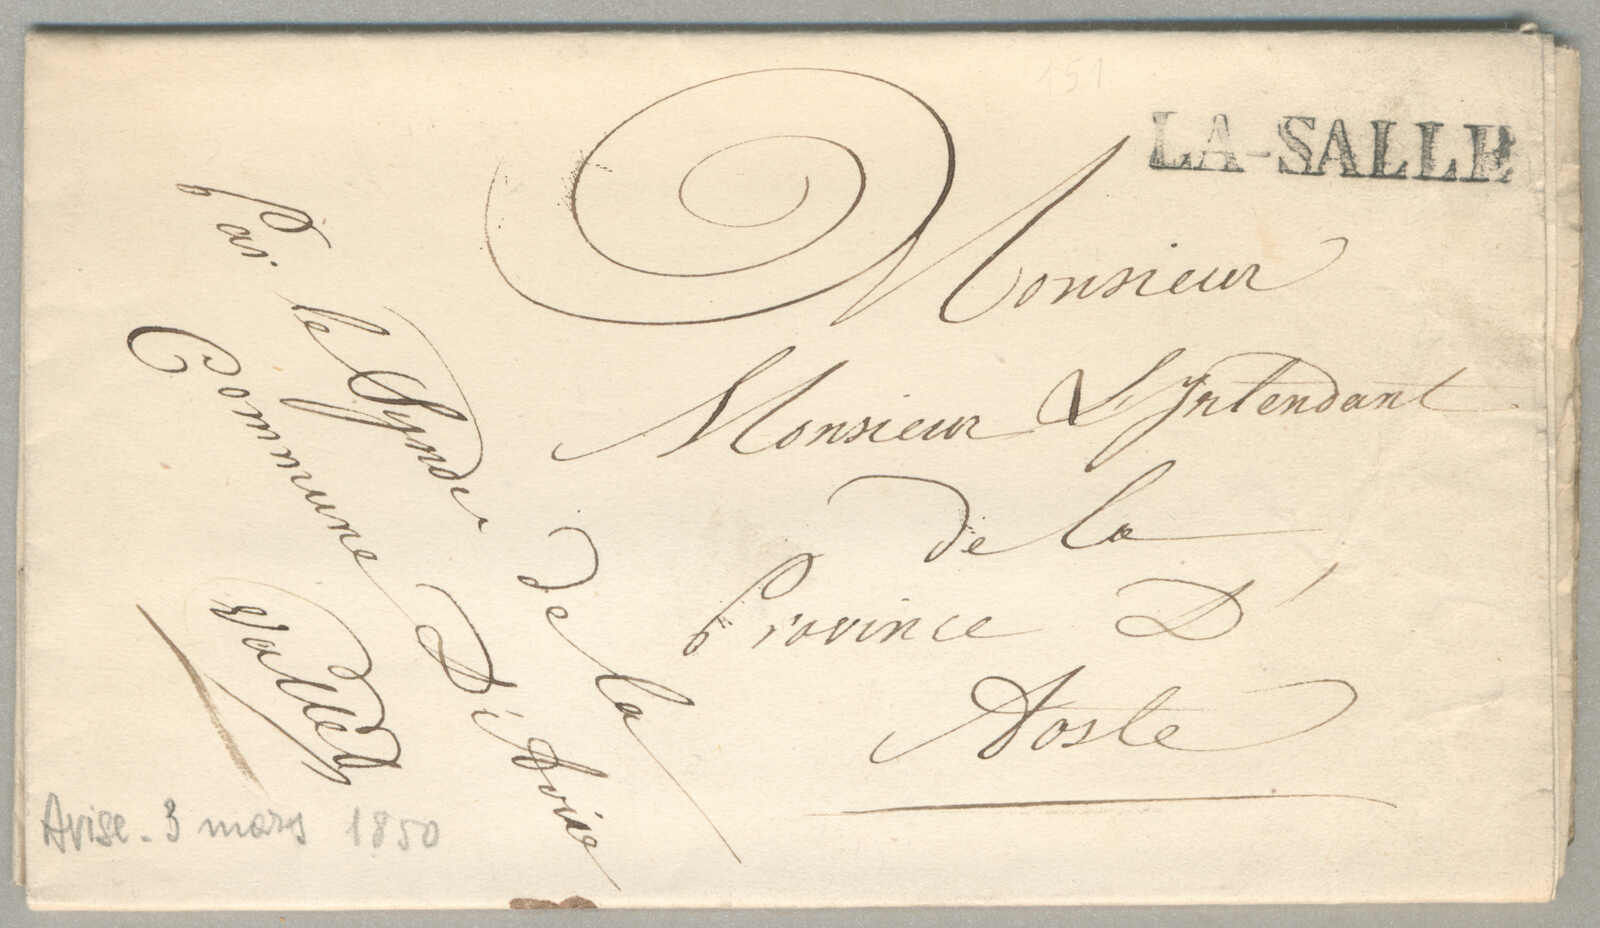 151
LA-SALLE
Monsieur
Monsieur L'Intendant
de la
Province D'
Aoste
Par le Syndic de la
Commune D'Avise
Vallet
Avise - 3 mars 1850